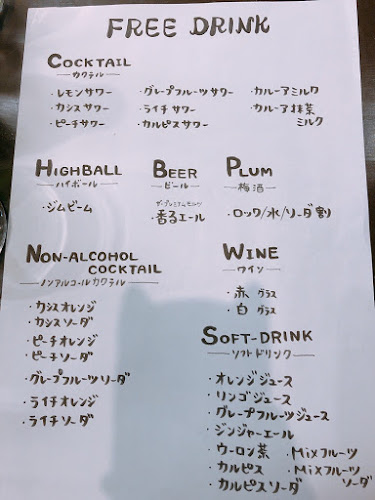 FREE DRINK
COCKTAIL
カクテル
・レモンサワー
・カシスサワー
・ピーチサワー
・グレープフルーツサワー
・ライチサワー
・カルピスサワー
・カルーアミルク
・カルーア抹茶
ミルク
HIGHBALL
ハイボール
・ジムビーム
BEER
ビール
ザ・プレミアムモルツ
・香るエール
PLUM
梅酒
・ロック/水/ソーダ割り
NON-ALCOHOL
COCKTAIL
ノンアルコールカクテル
・カシスオレンジ
・カシスソーダ
・ピーチオレンジ
・ピーチソーダ
・グレープフルーツソーダ
・ライチオレンジ
・ライチソーダ
WINE
ワイン
・赤 グラス
・白 グラス
SOFT-DRINK
ソフトドリンク
・オレンジジュース
・リンゴジュース
・グレープフルーツジュース
・ジンジャーエール
・ウーロン茶
・カルピス
・カルピスソーダ
・Mixフルーツ
・Mixフルーツ
ソーダ